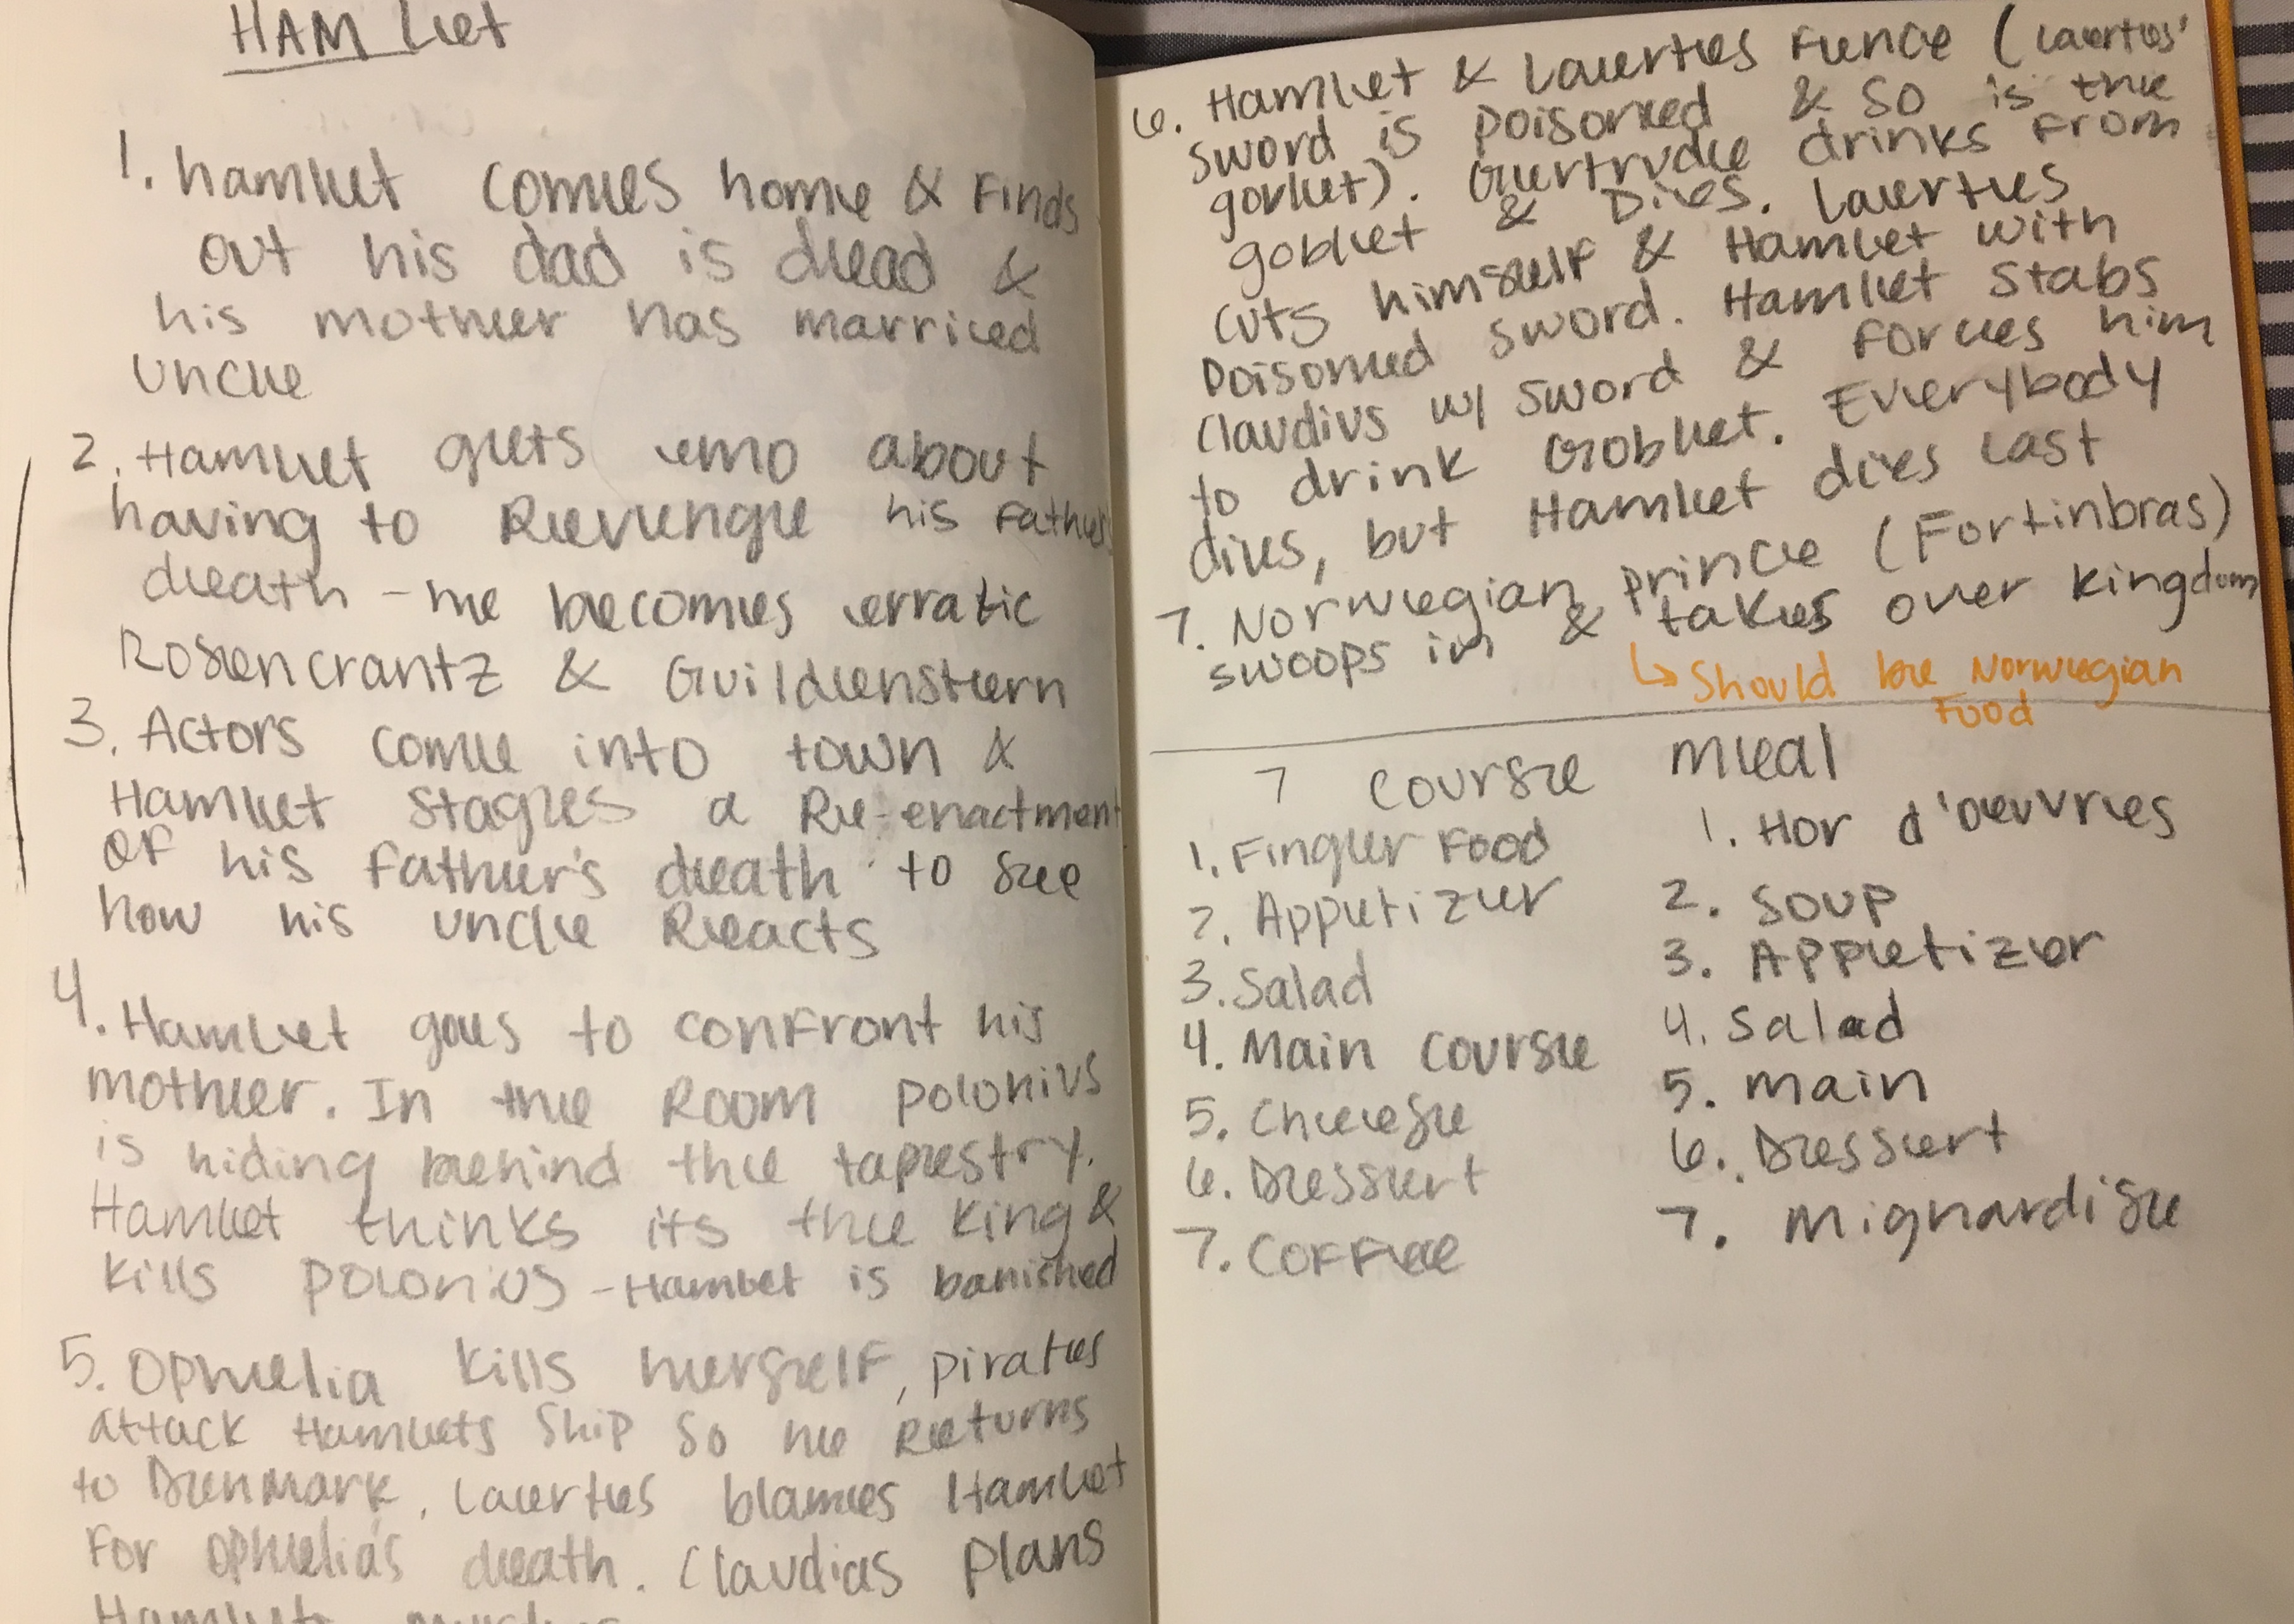 HAMLET
1. hamlet comes home & finds
out his dad is dead &
his mother has married
uncle
2. Hamlet gets emo about
having to Revenge his father's
death - he becomes erratic
Rosencrantz & Guildenstern
3. Actors come into town &
Hamlet stages a Re-enactment
of his father's death to see
how his uncle Reacts
4. Hamlet goes to confront his
mother. In the Room polonius
is hiding behind the tapestry.
Hamlet thinks its the king &
kills polonius - Hamlet is banished
5. Ophelia kills herself, pirates
attack Hamlets ship so he Returns
to Denmark. Laertes blames Hamlet
For Ophelia's death. Claudias plans
Hamlet's
6. Hamlet & Laertes Fence (Laertes'
sword is poisoned & so is the
gorlet). Gertrude drinks from
goblet & Dies. Laertes
cuts himself & Hamlet with
Poisoned sword. Hamlet stabs
Claudius w/ sword & forces him
to drink Goblet. Everybody
dies, but Hamlet dies last
7. Norwegian prince (Fortinbras)
swoops in & takes over kingdom
↳ Should be Norwegian
Food
7 course meal
1. Finger Food
2. Appetizer
3. Salad
4. Main course
5. Cheese
6. Dessert
7. Coffee
1. Hor d'oeuvres
2. Soup
3. Appetizer
4. Salad
5. main
6. Dessert
7. Mignardise